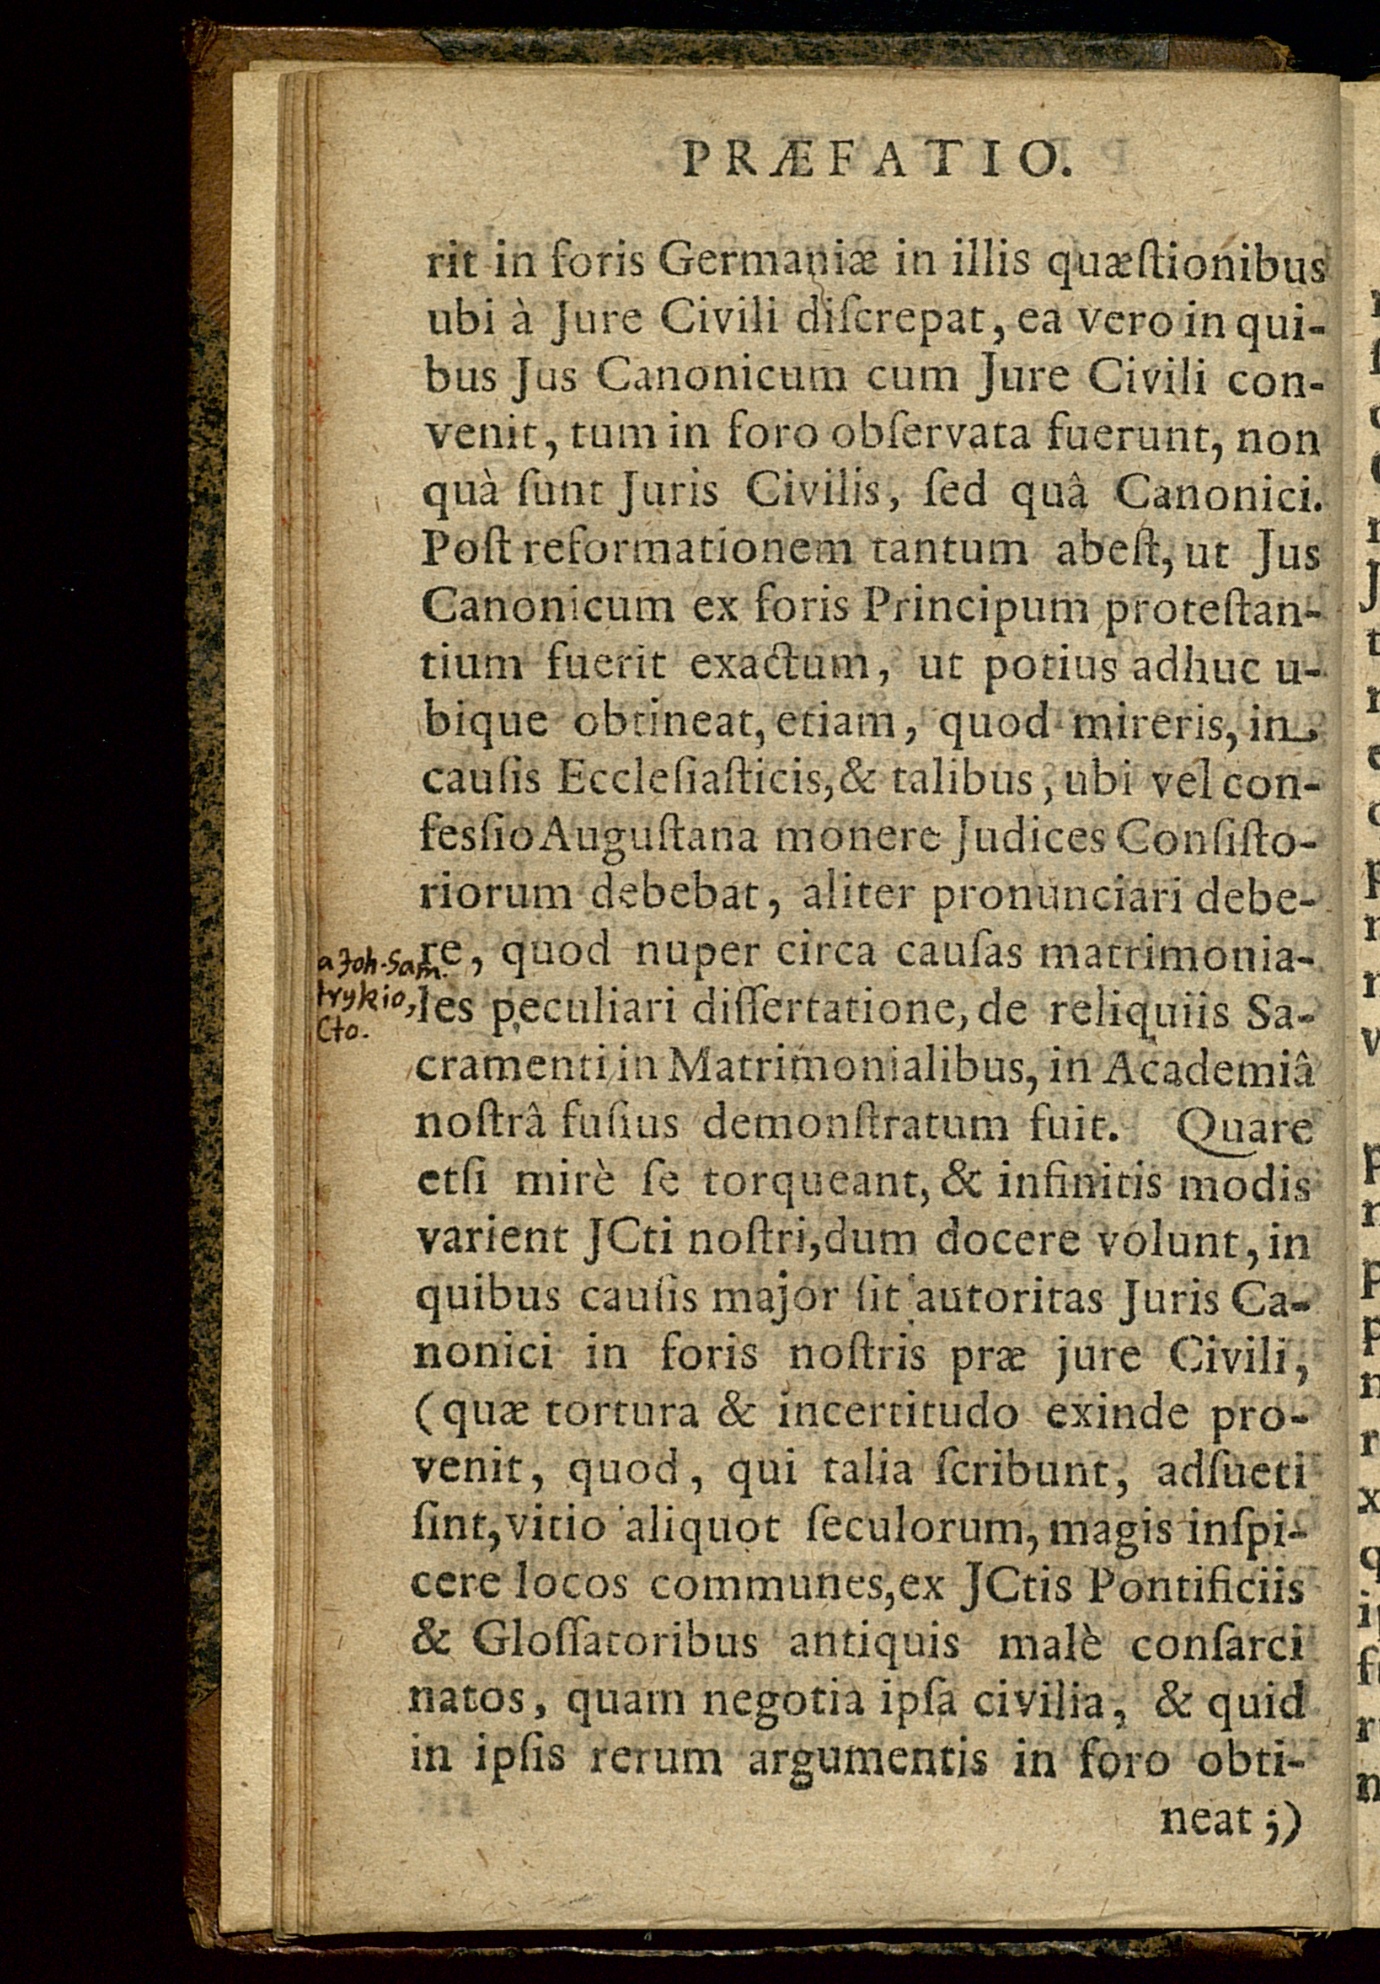 PRÆFATIO.
rit in foris Germaniæ in illis quæſtionibus
ubi à Jure Civili diſcrepat, ea vero in qui-
bus Jus Canonicum cum Jure Civili con-
venit, tum in foro obſervata fuerunt, non
quà ſunt Juris Civilis, ſed quâ Canonici.
Poſt reformationem tantum abeſt, ut Jus
Canonicum ex foris Principum proteſtan-
tium fuerit exactum, ut potius adhuc u-
bique obtineat, etiam, quod mireris, in
cauſis Eccleſiaſticis, & talibus, ubi vel con-
feſſio Auguſtana monere Judices Conſiſto-
riorum debebat, aliter pronunciari debe-
re, quod nuper circa cauſas matrimonia-
a Joh. Sam.
les peculiari diſſertatione, de reliquiis Sa-
trykio,
Cto.
cramenti in Matrimonialibus, in Academiâ
noſtrâ fuſius demonſtratum fuit. Quare
etſi mirè ſe torqueant, & infinitis modis
varient JCti noſtri, dum docere volunt, in
quibus cauſis major ſit autoritas Juris Ca-
nonici in foris noſtris præ jure Civili,
(quæ tortura & incertitudo exinde pro-
venit, quod, qui talia ſcribunt, adſueti
ſint, vitio aliquot ſeculorum, magis inſpi-
cere locos communes, ex JCtis Pontificiis
& Gloſſatoribus antiquis malè conſarci
natos, quam negotia ipſa civilia, & quid
in ipſis rerum argumentis in foro obti-
neat;)